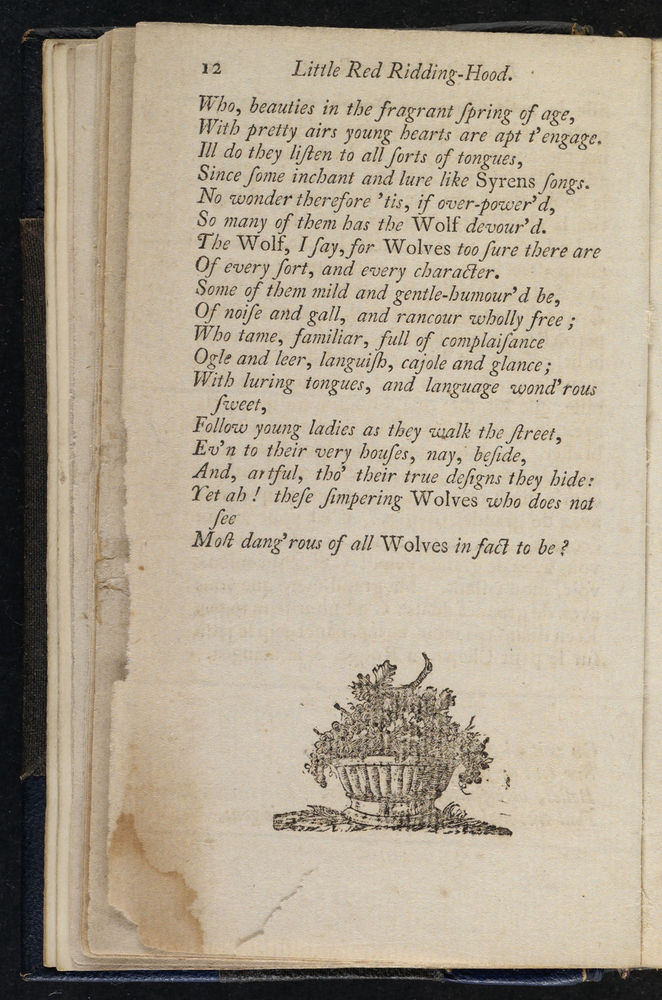 12 Little Red Ridding-Hood.
Who, beauties in the fragrant ſpring of age,
With pretty airs young hearts are apt t'engage.
Ill do they liſten to all ſorts of tongues,
Since ſome inchant and lure like Syrens ſongs.
No wonder therefore 'tis, if over-power'd,
So many of them has the Wolf devour'd.
The Wolf, I ſay, for Wolves too ſure there are
Of every ſort, and every character.
Some of them mild and gentle-humour'd be,
Of noiſe and gall, and rancour wholly free;
Who tame, familiar, full of complaiſance
Ogle and leer, languiſh, cajole and glance;
With luring tongues, and language wond'rous
ſweet,
Follow young ladies as they walk the ſtreet,
Ev'n to their very houſes, nay, beſide,
And, artful, tho' their true deſigns they hide:
Yet ah! theſe ſimpering Wolves who does not
ſee
Moſt dang'rous of all Wolves in fact to be?